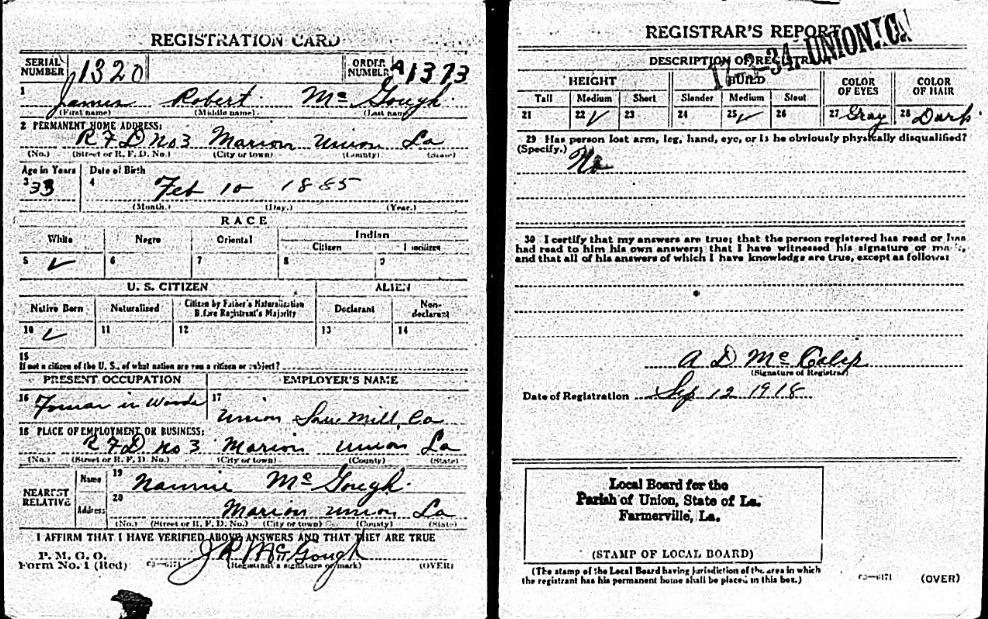 REGISTRATION CARD
SERIAL NUMBER 1320 ORDER NUMBER A1373
1 James Robert McGough
(First name) (Middle name) (Last name)
2 PERMANENT HOME ADDRESS:
R F D No 3 Marion Union La
(No.) (Street or R. F. D. No.) (City or town) (County) (State)
Age in Years Date of Birth
3 33 4 Feb 10 1885
(Month.) (Day.) (Year.)
RACE
White Negro Oriental Indian
Citizen
5 ✓ 6 7 8 9
U. S. CITIZEN ALIEN
Native Born Naturalized Citizen by Father's Naturalization Before Registrant's Majority Declarant Non-declarant
10 ✓ 11 12 13 14
15
If not a citizen of the U. S., of what nation are you a citizen or subject?
PRESENT OCCUPATION EMPLOYER'S NAME
16 in Woods 17 Union Saw Mill Co
18 PLACE OF EMPLOYMENT OR BUSINESS:
R F D no 3 Marion Union La
(No.) (Street or R. F. D. No.) (City or town) (County) (State)
NEAREST RELATIVE
Name 19 Nannie McGough
Address 20 Marion Union La
(No.) (Street or R. F. D. No.) (City or town) (County) (State)
I AFFIRM THAT I HAVE VERIFIED ABOVE ANSWERS AND THAT THEY ARE TRUE
P. M. G. O.
Form No. 1 (Red) J R McGough
(Registrant's signature or mark) (OVER)
REGISTRAR'S REPORT
DESCRIPTION OF REGISTRANT
HEIGHT BUILD COLOR OF EYES COLOR OF HAIR
Tall Medium Short Slender Medium Stout
21 22 ✓ 23 24 25 ✓ 26 27 Gray 28 Dark
29 Has person lost arm, leg, hand, eye, or is he obviously physically disqualified?
(Specify.) No
30 I certify that my answers are true; that the person registered has read or has
had read to him his own answers; that I have witnessed his signature or mark,
and that all of his answers of which I have knowledge are true, except as follows:
A D McCalip
(Signature of Registrar)
Date of Registration Sep 12 1918
Local Board for the
Parish of Union, State of La.
Farmerville, La.
(STAMP OF LOCAL BOARD)
(The stamp of the Local Board having jurisdiction of the area in which
the registrant has his permanent home shall be placed in this box.)
(OVER)